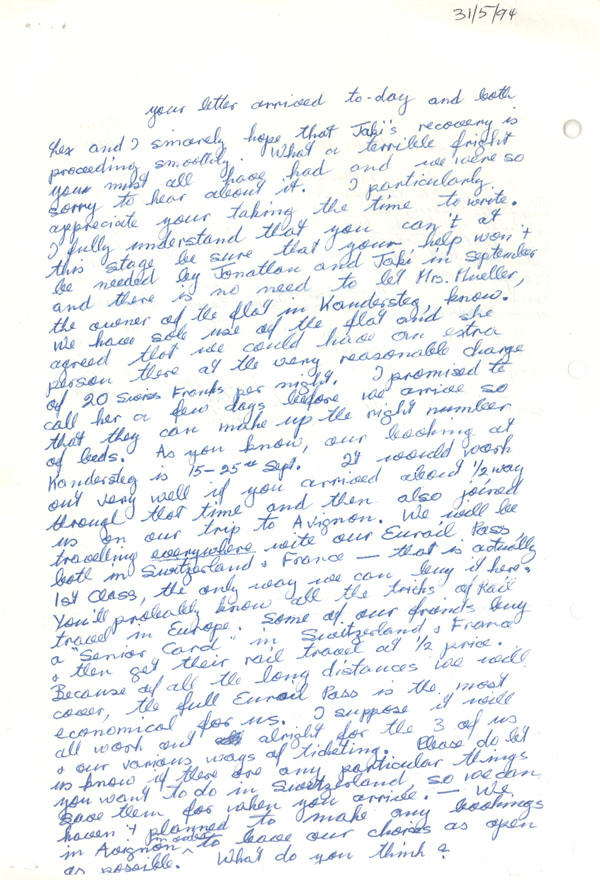 31/5/94
your letter arrived to-day and both
Lex and I sincerely hope that Jaki's recovery is
proceeding smoothly. What a terrible fright
your must all have had and we were so
sorry to hear about it. I particularly
appreciate your taking the time to write.
I fully understand that you can't at
this stage be sure that your help won't
be needed by Jonathan and Jaki in September
and there is no need to let Mrs. Mueller,
the owner of the flat in Kandersteg, know.
We have sole use of the flat and she
agreed that we could have an extra
person there at the very reasonable charge
of 20 Swiss Franks per night. I promised to
call her a few days before we arrive so
that they can make up the right number
of beds. As you know, our booking at
Kandersteg is 15-25th Sept. It would work
out very well if you arrived about 1/2 way
through that time and then also joined
us on our trip to Avignon. We will be
travelling everywhere with our Eurail Pass
both in Switzerland & France — that is actually
1st Class, the only way we can buy it here.
You'll probably know all the tricks of Rail
travel in Europe. Some of our friends buy
a "Senior Card" in Switzerland & France
& then get their rail travel at 1/2 price.
Because of all the long distances we will
cover, the full Eurail Pass is the most
economical for us. I suppose it will
all work out alright for the 3 of us
& our various ways of ticketing. Please do let
us know if there are any particular things
you want to do in Switzerland, so we can
save them for when you arrive. — We
haven't planned to make any bookings
in Avignon to leave our choices as open
as possible. What do you think?